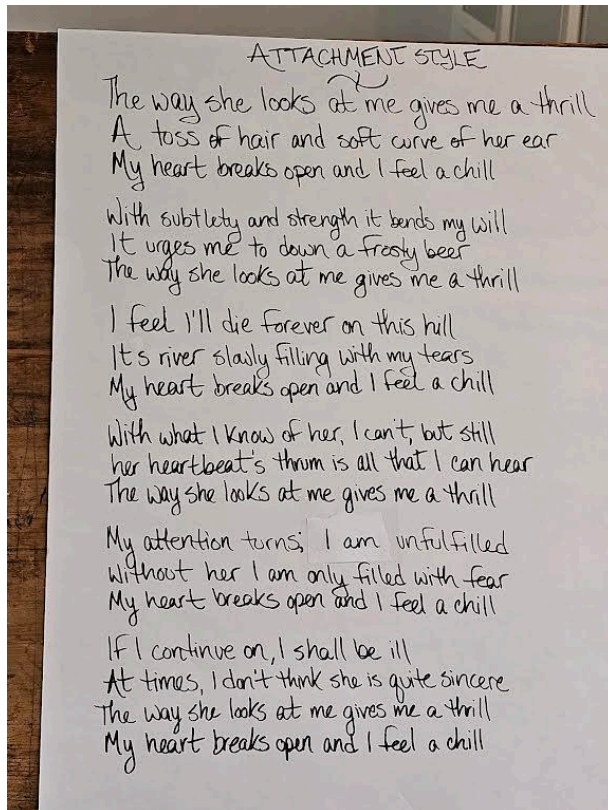 ATTACHMENT STYLE
The way she looks at me gives me a thrill
A toss of hair and soft curve of her ear
My heart breaks open and I feel a chill
With subtlety and strength it bends my will
It urges me to down a frosty beer
The way she looks at me gives me a thrill
I feel I'll die forever on this hill
Its river slowly filling with my tears
My heart breaks open and I feel a chill
With what I know of her, I can't, but still
her heartbeat's thrum is all that I can hear
The way she looks at me gives me a thrill
My attention turns; I am unfulfilled
Without her I am only filled with fear
My heart breaks open and I feel a chill
If I continue on, I shall be ill
At times, I don't think she is quite sincere
The way she looks at me gives me a thrill
My heart breaks open and I feel a chill